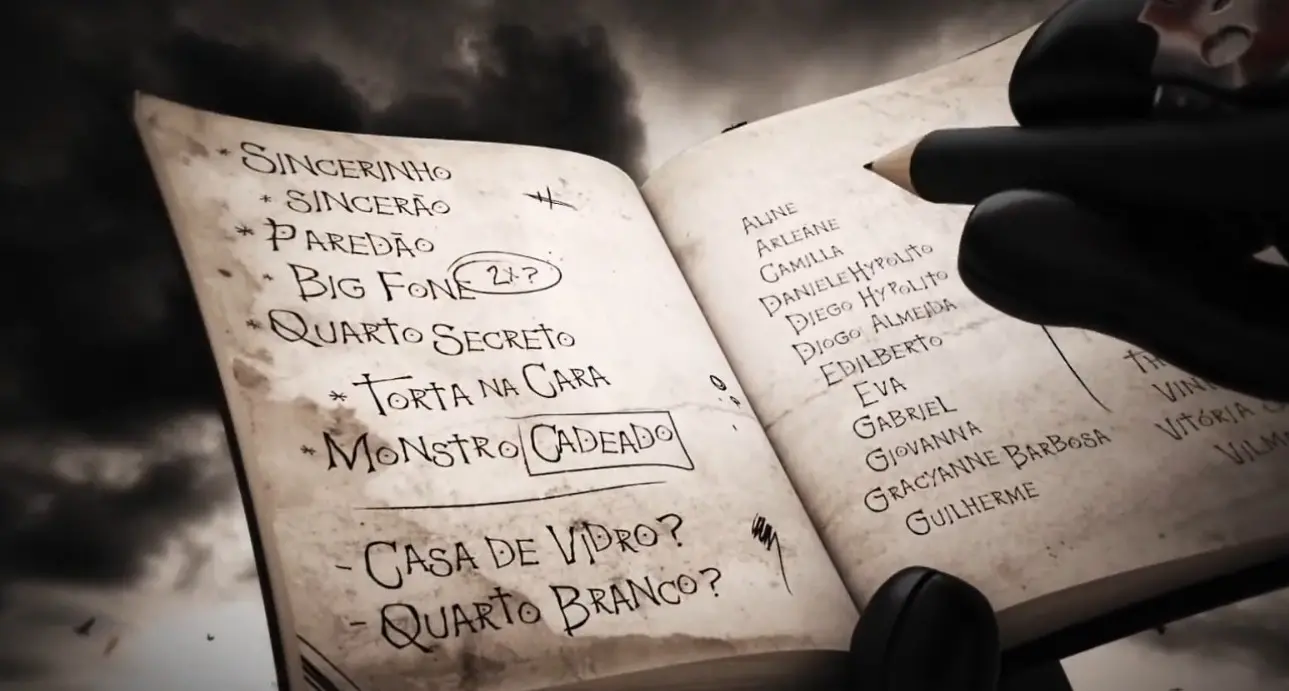 * SINCERINHO
* SINCERÃO
* PAREDÃO
* BIG FONE 2X?
* QUARTO SECRETO
* TORTA NA CARA
* MONSTRO CADEADO
- CASA DE VIDRO?
- QUARTO BRANCO?
ALINE
ARLEANE
CAMILLA
DANIELE HYPOLITO
DIEGO HYPOLITO
DIOGO ALMEIDA
EDILBERTO
EVA
GABRIEL
GIOVANNA
GRACYANNE BARBOSA
GUILHERME
VITÓRIA